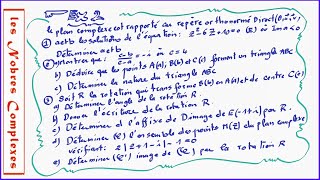 les Nombres Complexes
Ex 2
le plan complexe est rapporté au repère orthonormé Direct
a et b les solutions de l'équation:
Déterminer a et b
Montrer que: c = 4
b) Déduire que les points A(a), B(b) et C(c) forment un triangle ABC
c) Déterminer la nature du triangle ABC
Soit R la rotation que transforme B(b) en A(a) et de centre C(c)
a) Déterminer l'angle de la rotation R
b) Donner l'écriture de la rotation R
c) Déterminer l'affixe de l'image de E(-1+i) par R.
d) Déterminer l'ensemble des points M(z) du plan complexe
vérifiant:
e) Déterminer image de par la rotation R